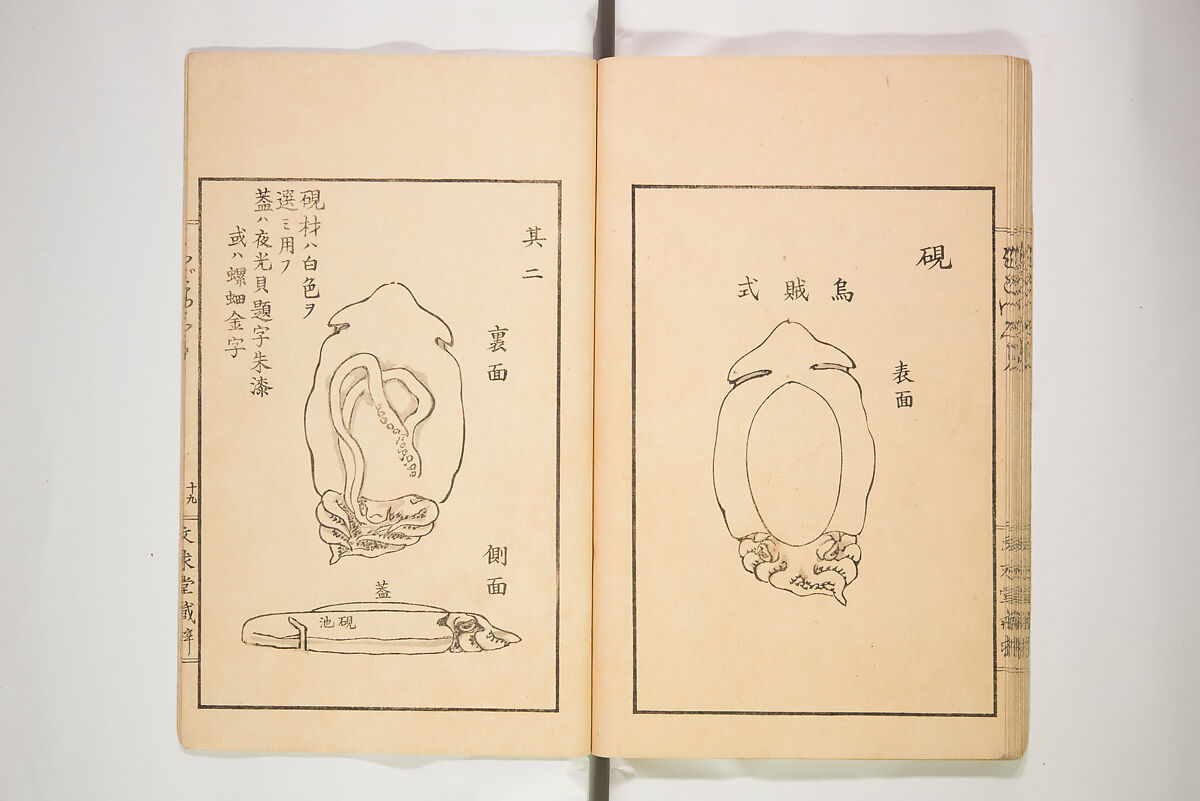 硯
烏賊式
表面
其二
裏面
硯材ハ白色ヲ
選ミ用フ
蓋ハ夜光貝題字朱漆
或ハ螺鈿金字
側面
蓋
硯池
十九
文求堂蔵梓